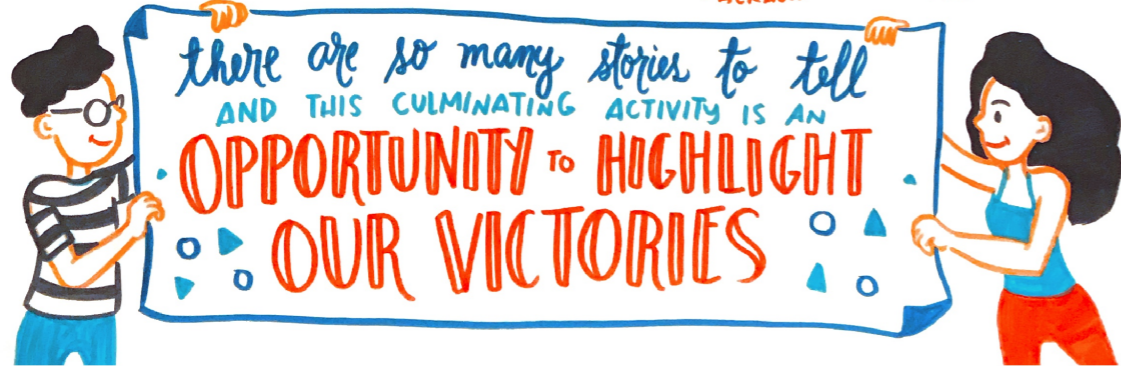 there are so many stories to tell
AND THIS CULMINATING ACTIVITY IS AN
OPPORTUNITY TO HIGHLIGHT
OUR VICTORIES